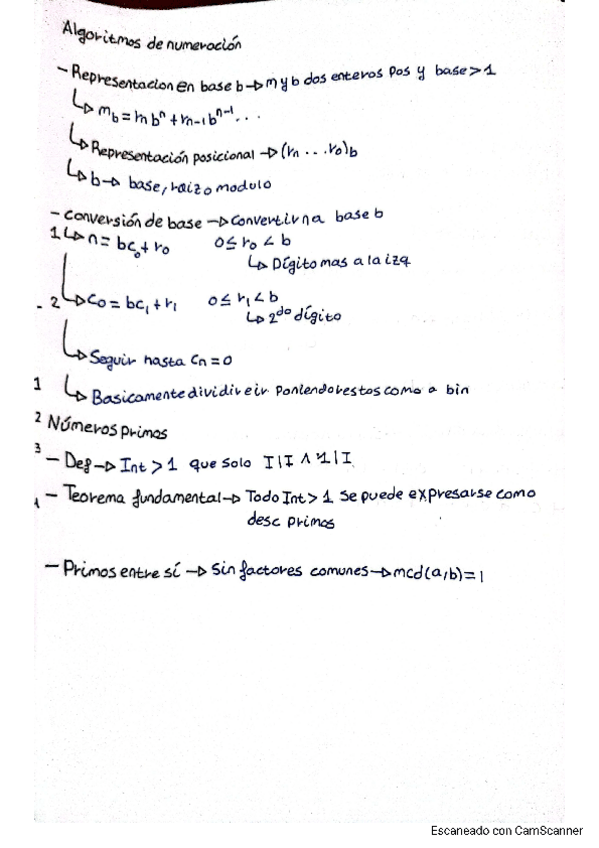 Algoritmos de numeración
- Representacion en base b → m y b dos enteros pos y base > 1
↳ m_b = r_n b^n + r_n-1 b^n-1 ...
↳ Representación posicional → (r_n ... r_0)_b
↳ b → base, raiz o modulo
- Conversión de base → Convertir n a base b
1 ↳ n = bc_0 + r_0 0 ≤ r_0 < b
↳ Dígito mas a la izq
- 2 ↳ C_0 = bc_1 + r_1 0 ≤ r_1 < b
↳ 2^do dígito
↳ Seguir hasta C_n = 0
1 ↳ Basicamente dividir e ir poniendo restos como a bin
2 Números primos
3 - Def → Int > 1 que solo I|I ∧ 1|I
1 - Teorema fundamental → Todo Int > 1 se puede expresarse como
desc primos
- Primos entre sí → Sin factores comunes → mcd(a,b) = 1
Escaneado con CamScanner